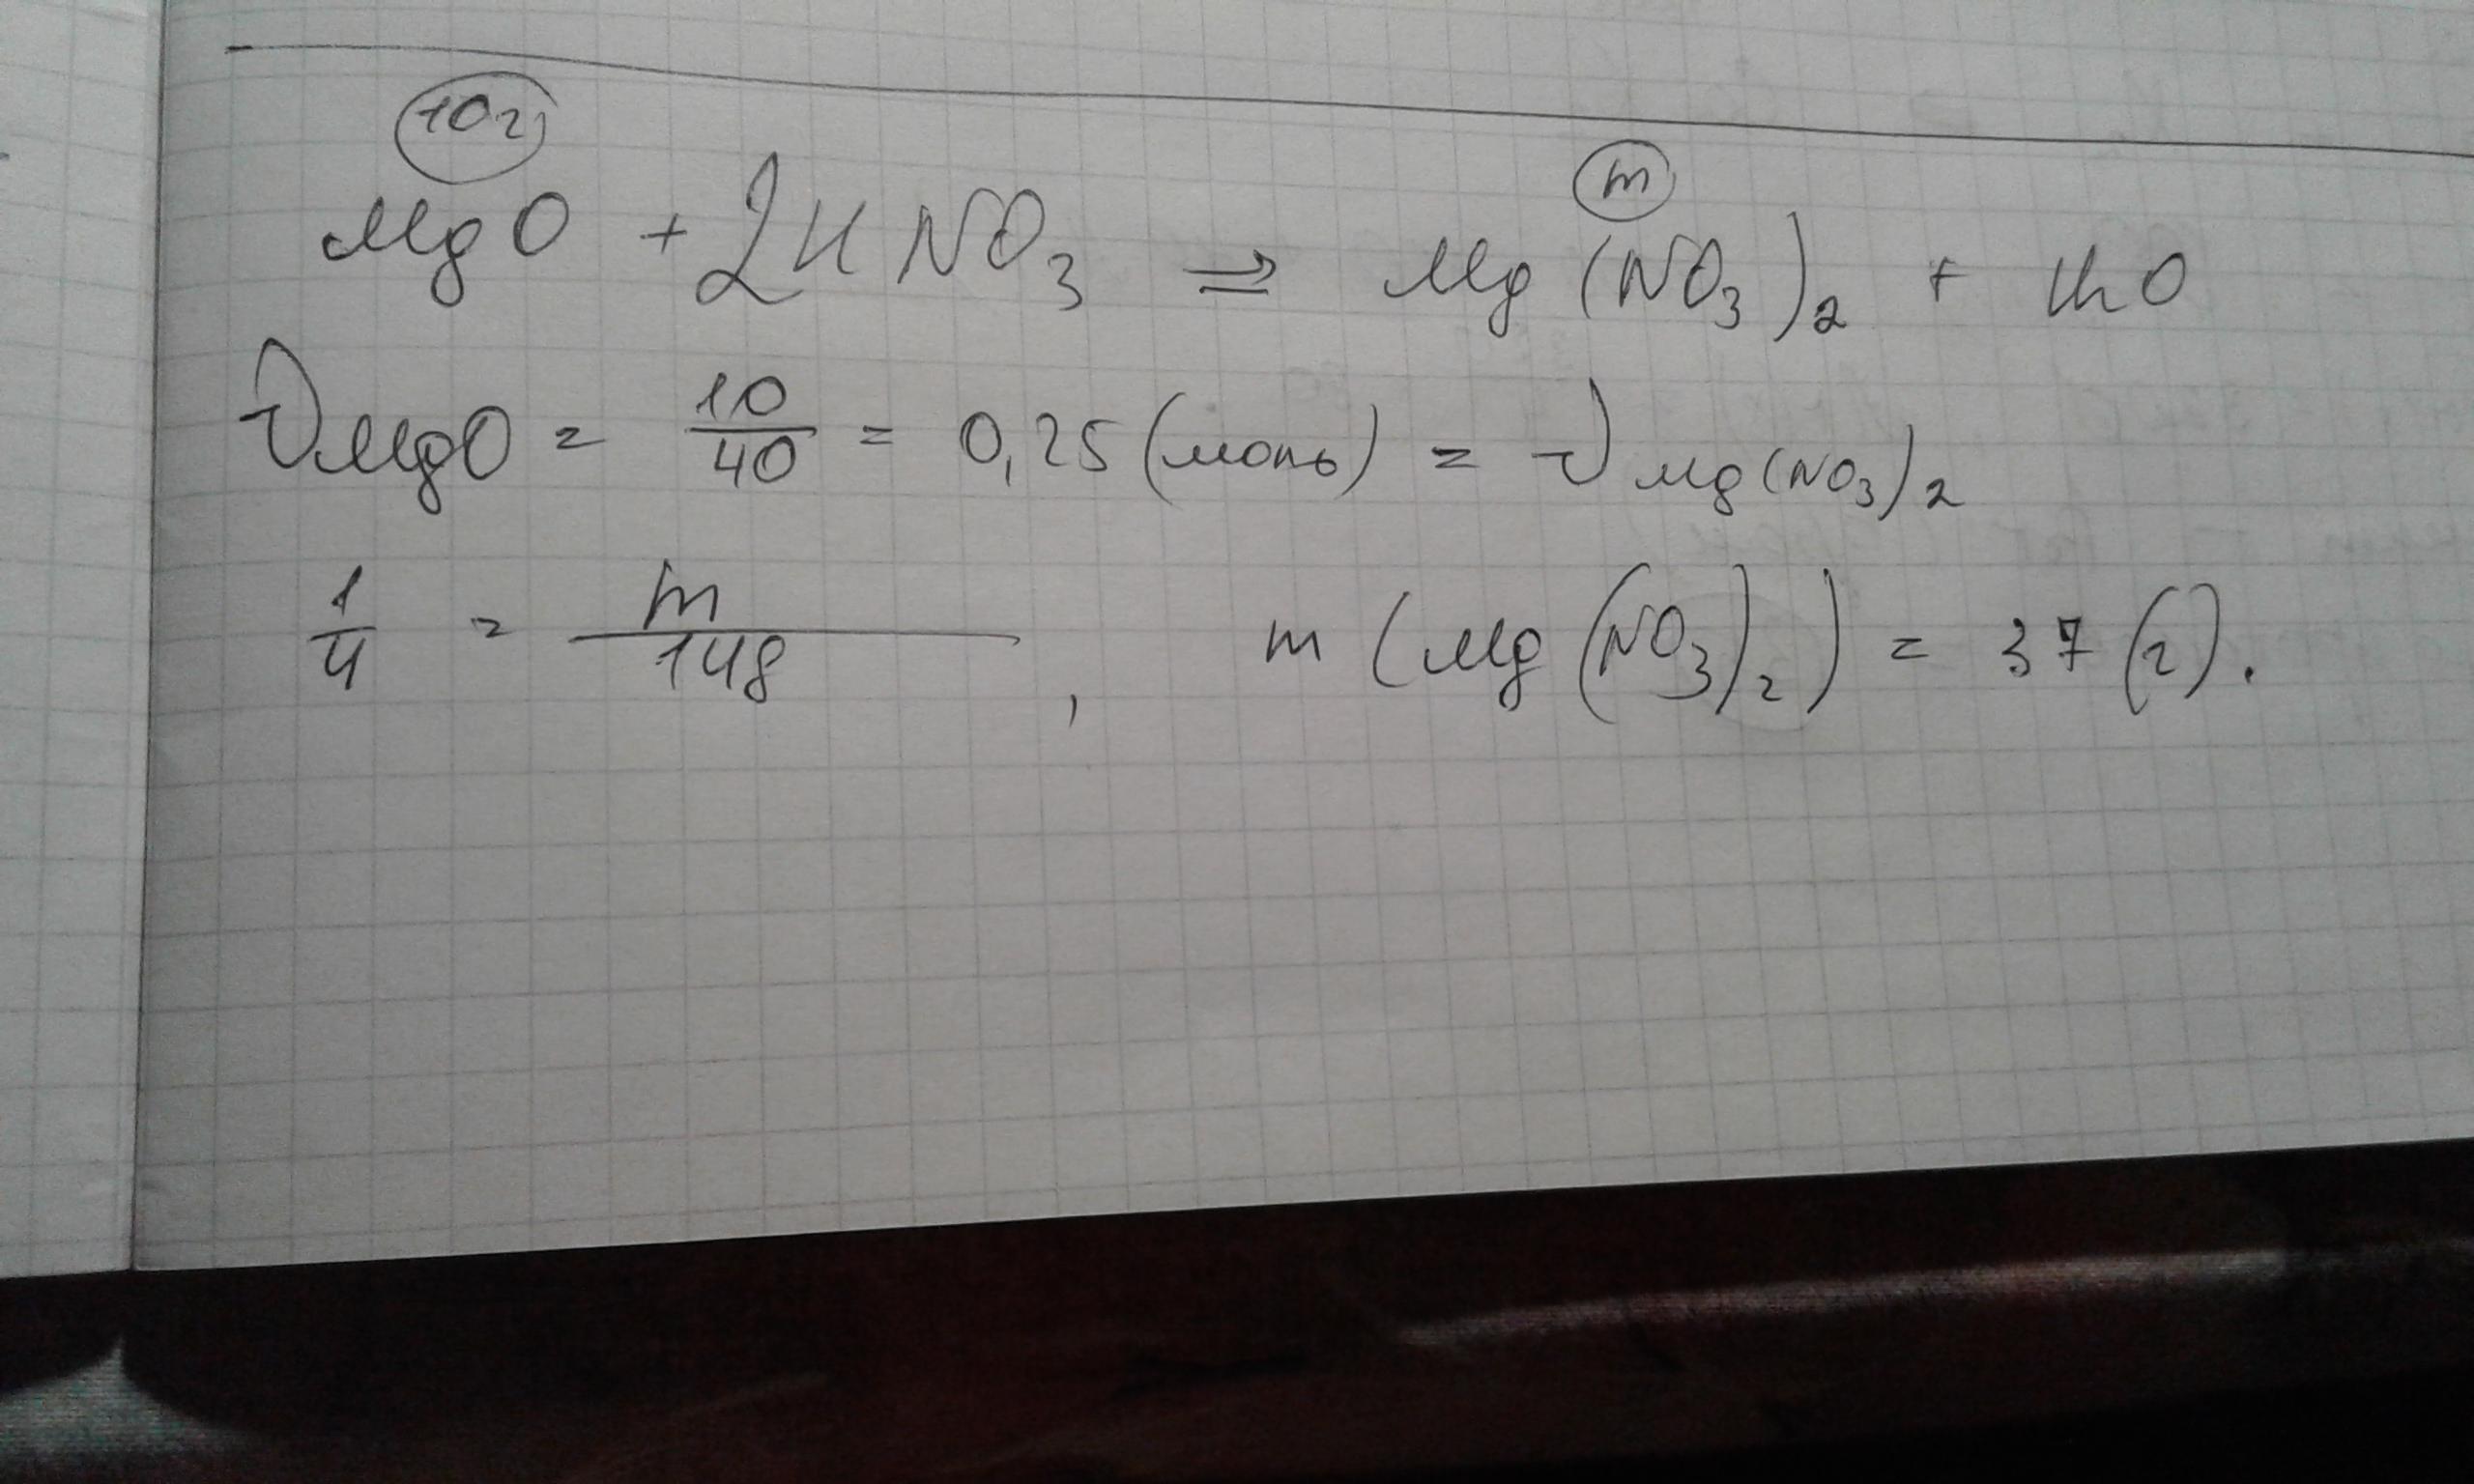 10г m
MgO + 2HNO₃ ⇒ Mg(NO₃)₂ + H₂O
νMgO = 10/40 = 0,25 (моль) = νMg(NO₃)₂
1/4 = m/148 , m(Mg(NO₃)₂) = 37 (г).